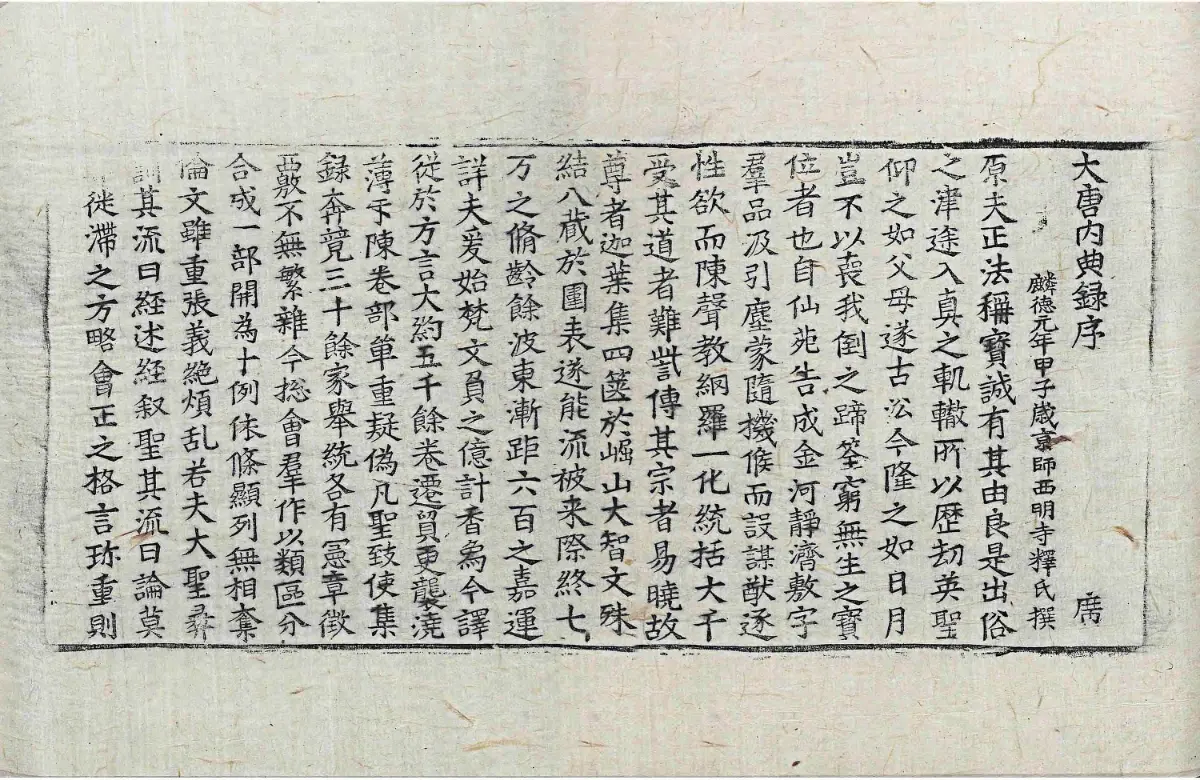 大唐内典録序 席
麟德元年甲子歲京師西明寺釋氏撰
原夫正法稱寶誠有其由良是出俗
之津途入真之軌轍所以歴劫英聖
仰之如父母遂古訟今隆之如日月
豈不以喪我倒之蹄筌窮無生之寶
位者也自仙苑告成金河靜濟敷字
羣品汲引塵蒙隨機候而設謀猷逐
性欲而陳聲教網羅一化統括大千
受其道者難訾傳其宗者易曉故
尊者迦葉集四篋於崛山大智文殊
結八蔵於圍表遂能流被来際終七
万之脩齡餘波東漸距六百之嘉運
詳夫爰始梵文負之億計香象今譯
從於方言大約五千餘卷遷貿更襲澆
薄于陳卷部單重疑偽凡聖致使集
録奔競三十餘家舉統各有憲章徵
覈不無繁雜今捴會羣作以類區分
合成一部開為十例依條顯列無相奪
倫文雖重張義絶煩乱若夫大聖彞
訓其流曰經述經叙聖其流曰論莫
徙滯之方略會正之格言珎重則